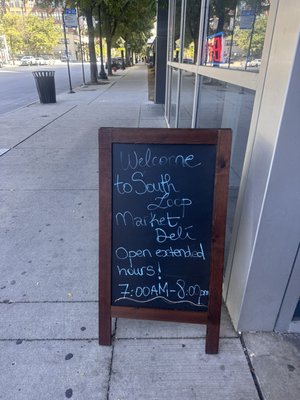 Welcome
to South
Loop
Market
Deli
Open extended
hours!
7:00AM-8:00PM